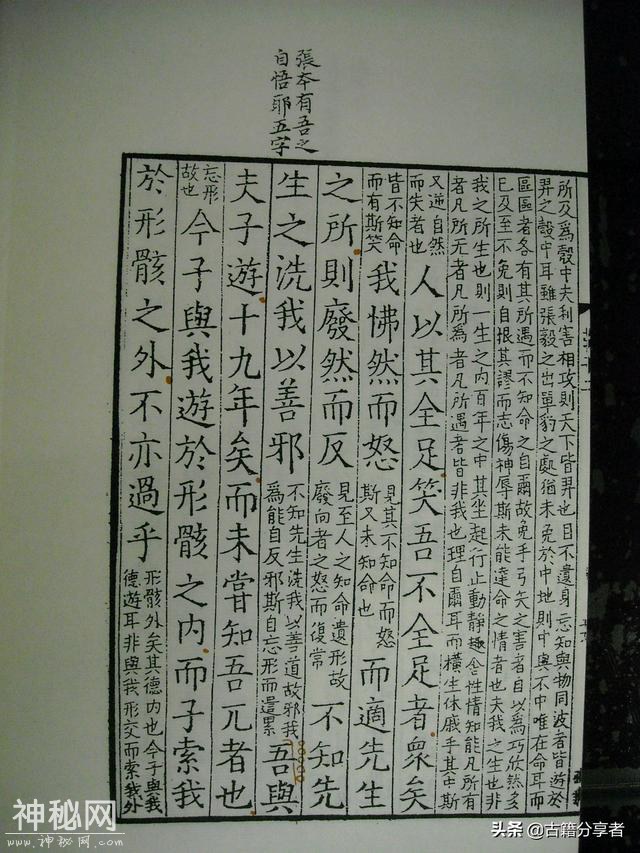 張本有吾之
自悟耶五字
所及為彀中夫利害相攻則天下皆羿也自不遺身忘知與物同波者皆遊於
羿之彀中耳雖張毅之出單豹之處猶未免於中地則中與不中唯在命耳而
區區者各有其所遇而不知命之自爾故免乎弓矢之害者自以為巧欣然多
已及至不免則自恨其謬而志傷神辱斯未能達命之情者也夫我之生也非
我之所生也則一生之內百年之中其坐起行止動靜趣舍性情知能凡所有
者凡所無者凡所為者凡所遇者皆非我也理自爾耳而橫生休戚乎其中斯
又逆自然而失者也人以其全足笑吾不全足者衆矣
皆不知命而有斯笑我怫然而怒見其不知命而怒斯又未知命也而適先生
之所則廢然而反見至人之知命遺形故廢向者之怒而復常不知先
生之洗我以善邪不知先生洗我以善道故邪我為能自反邪斯自忘形而遺累吾與
夫子遊十九年矣而未嘗知吾兀者也
忘形故也今子與我遊於形骸之內而子索我
於形骸之外不亦過乎形骸外矣其德內也今子與我德遊耳非與我形交而索我外
神秘网
www.神秘网.com
头条 @古籍分享者